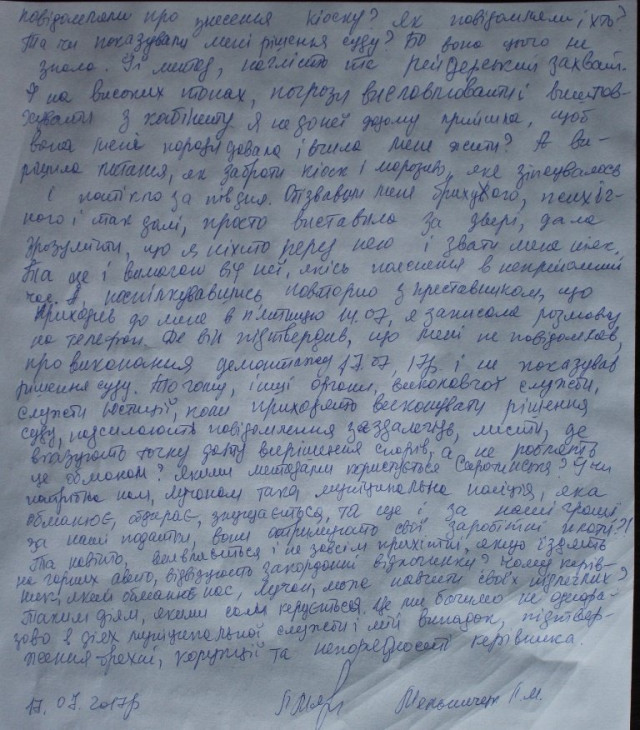 повідомляли про знесення кіоску? Як повідомляли, і хто?
Та чи показували мені рішення суду? Бо вона цього не
знала. Чи метод, нагліство та рейдерський захват.
А на високих тонах, погрози висловлювати і
з кабінету. Я не до неї додому прийшла, щоб
вона мене і вчила мене жити? А ви-
рішила питання, як забрати кіоск і морозиво, яке зіпсувалось
і потікло за півдня. Обзивали мене психіч-
ною і так далі, просто виставила за двері, дала
зрозуміти, що я ніхто перед нею і звати мене ніяк.
Та ще і вимагою від неї, якісь пояснення в неприйомний
час. А, поспілкувавшись повторно з представником, що
приходив до мене в п'ятницю 14.07, я записала розмову
на телефон. Де він підтвердив, що мені не повідомляв,
про виконання демонтажу 17.07, 17р і не показував
рішення суду. По чому, інші органи, виконавчої служби,
служби юстиції, коли приходять виконувати рішення
суду, надсилають повідомлення заздалегідь, листи, де
вказують точну дату вирішення спорів, а не роблять
це обманом? Якими методами користується
нам, Лучаном така, муніципальна поліція, яка
обманює, обдирає, знущається, та ще і за наші гроші
за наші податки, вони отримують свої заробітні плати?!
Та навіть, виявляється і не зовсім прихітні, якщо їздять
на гарних авто, відвідують закордонні відпочинки? Чому керів-
ник, яким обманює нас, Лучан, може навчити своїх підлеглих?
Таким діям, якими сам керується. Це ми бачимо не однора-
зово в діях муніципальної служби і мій випадок, підтвер-
ження брехні, корупції та непорядності керівника.
17.07.2017р Мельничук Л.М.